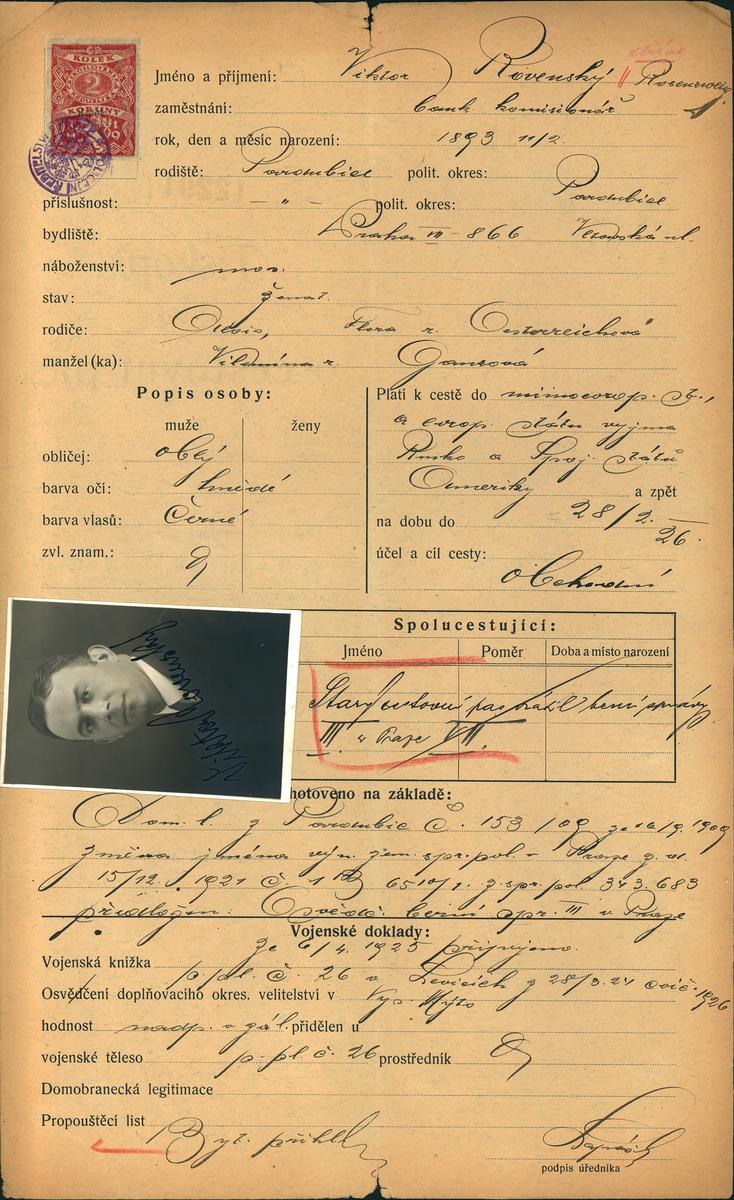 ČR
KOLEK
2
KORUNY
Jméno a příjmení: Viktor Rovenský || Rosenzweig
zaměstnání: bank. komisionář
rok, den a měsíc narození: 1893 11/2.
rodiště: Pardubice polit. okres: Pardubice
příslušnost: - " - polit. okres:
bydliště: Praha VII - 866
náboženství: mos.
stav: ženat.
rodiče: Flora r. Oesterreichová
manžel (ka): Vilemína r. Ganzová
Popis osoby:
muže ženy
obličej: oblý
barva očí: hnědé
barva vlasů: černé
zvl. znam.:
Platí k cestě do mimoevrop. st.,
a evrop. států vyjma
Rusko a Spoj. států
Ameriky a zpět
na dobu do 28/2. 26.
účel a cíl cesty:
obchodní
Spolucestující:
Jméno Poměr Doba a místo narození
Starý cestovní pas
III. v Praze VII.
Viktor Rovenský
hotoveno na základě:
Dom. l. z Pardubic č. 153/09 ze 16/9. 1909
změna jména výn. zem. spr. pol. v Praze z
15/12. 1921 č. 1 B z. spr. pol. 343.683
přiložen. Osvědč. berní spr. III v Praze
Vojenské doklady:
ze 6/4. 1925 připojeno.
Vojenská knížka p. pl. č. 26 v Levicích z 28/3. 24 cvič. 1926
Osvědčení doplňovacího okres. velitelství v Vys. Mýto
hodnost přidělen u
vojenské těleso p. pl. č. 26 prostředník
Domobranecká legitimace
Propouštěcí list
Byt. přihl.
podpis úředníka